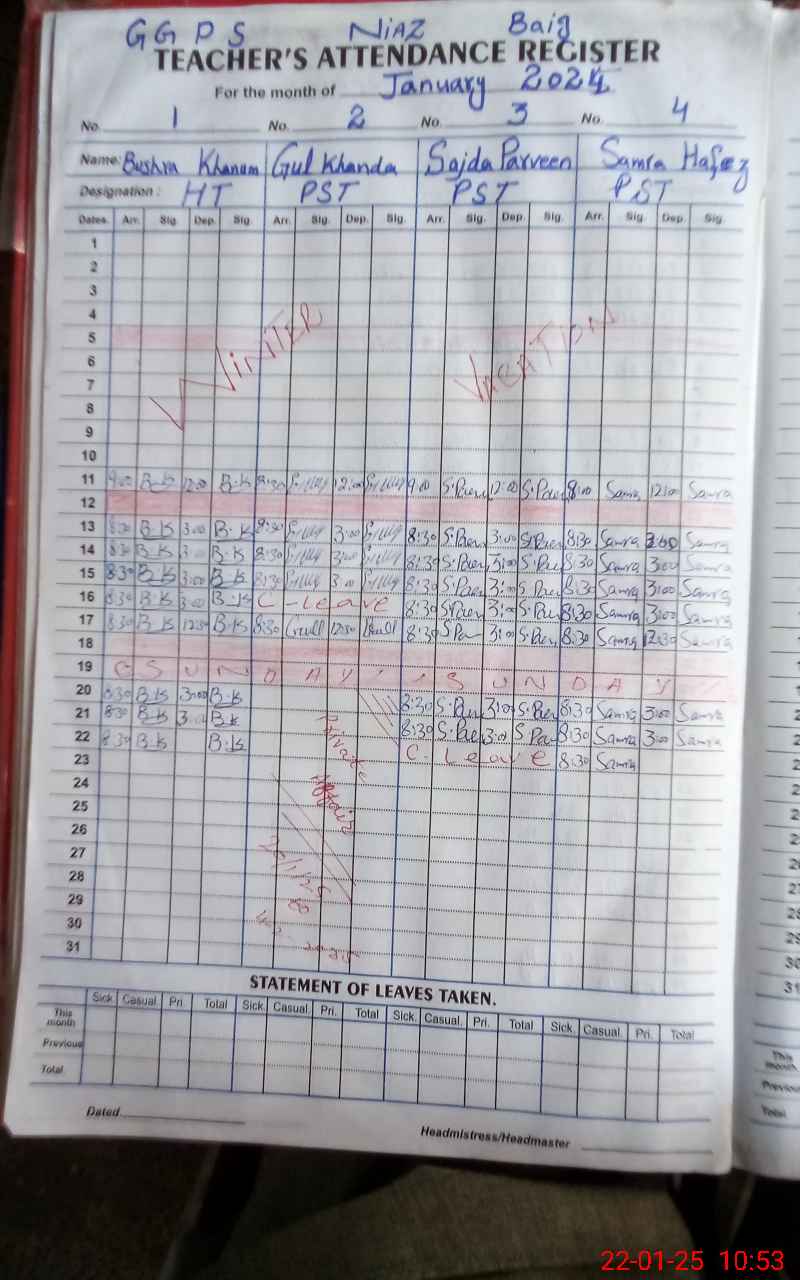 G G P S NIAZ Baig
TEACHER'S ATTENDANCE REGISTER
For the month of January 2024
No. 1 No. 2 No. 3 No. 4
Name: Bushra Khanum Gul Khanda Sajda Parveen Samra Hafeez
Designation: HT PST PST PST
Dates. Arr. Sig. Dep. Sig. Arr. Sig. Dep. Sig. Arr. Sig. Dep. Sig. Arr. Sig. Dep. Sig.
1
2
3
4
5
WINTER VACATION
6
7
8
9
10
11 9:00 B.K 12:00 B.K 8:30 12:00 9:00 S.Paer 12:00 S.Paer 9:00 Samra 12:00 Samra
12
13 8:30 B.K 3:00 B.K 8:30 3:00 8:30 S.Paer 3:00 S.Paer 8:30 Samra 3:00 Samra
14 8:30 B.K 3:00 B.K 8:30 3:00 8:30 S.Paer 3:00 S.Paer 8:30 Samra 3:00 Samra
15 8:30 B.K 3:00 B.K 8:30 3:00 8:30 S.Paer 3:00 S.Paer 8:30 Samra 3:00 Samra
16 8:30 B.K 3:00 B.K C-Leave 8:30 S.Paer 3:00 S.Paer 8:30 Samra 3:00 Samra
17 8:30 B.K 12:30 B.K 8:30 12:30 8:30 3:00 S.Paer 8:30 Samra 12:30 Samra
18
19 SUNDAY SUNDAY
20 8:30 B.K 3:00 B.K 8:30 S.Paer 3:00 S.Paer 8:30 Samra 3:00 Samra
21 8:30 B.K 3:00 B.K 8:30 S.Paer 3:00 S.Paer 8:30 Samra 3:00 Samra
22 8:30 B.K B.K C. Leave 8:30 Samra
Private
Affair
23
24
25
26
27
28
29
30
31
STATEMENT OF LEAVES TAKEN.
Sick. Casual. Pri. Total Sick. Casual. Pri. Total Sick. Casual. Pri. Total Sick. Casual. Pri. Total
This month
Previous
Total
Dated
Headmistress/Headmaster
This month
Previous
Total
22-01-25 10:53